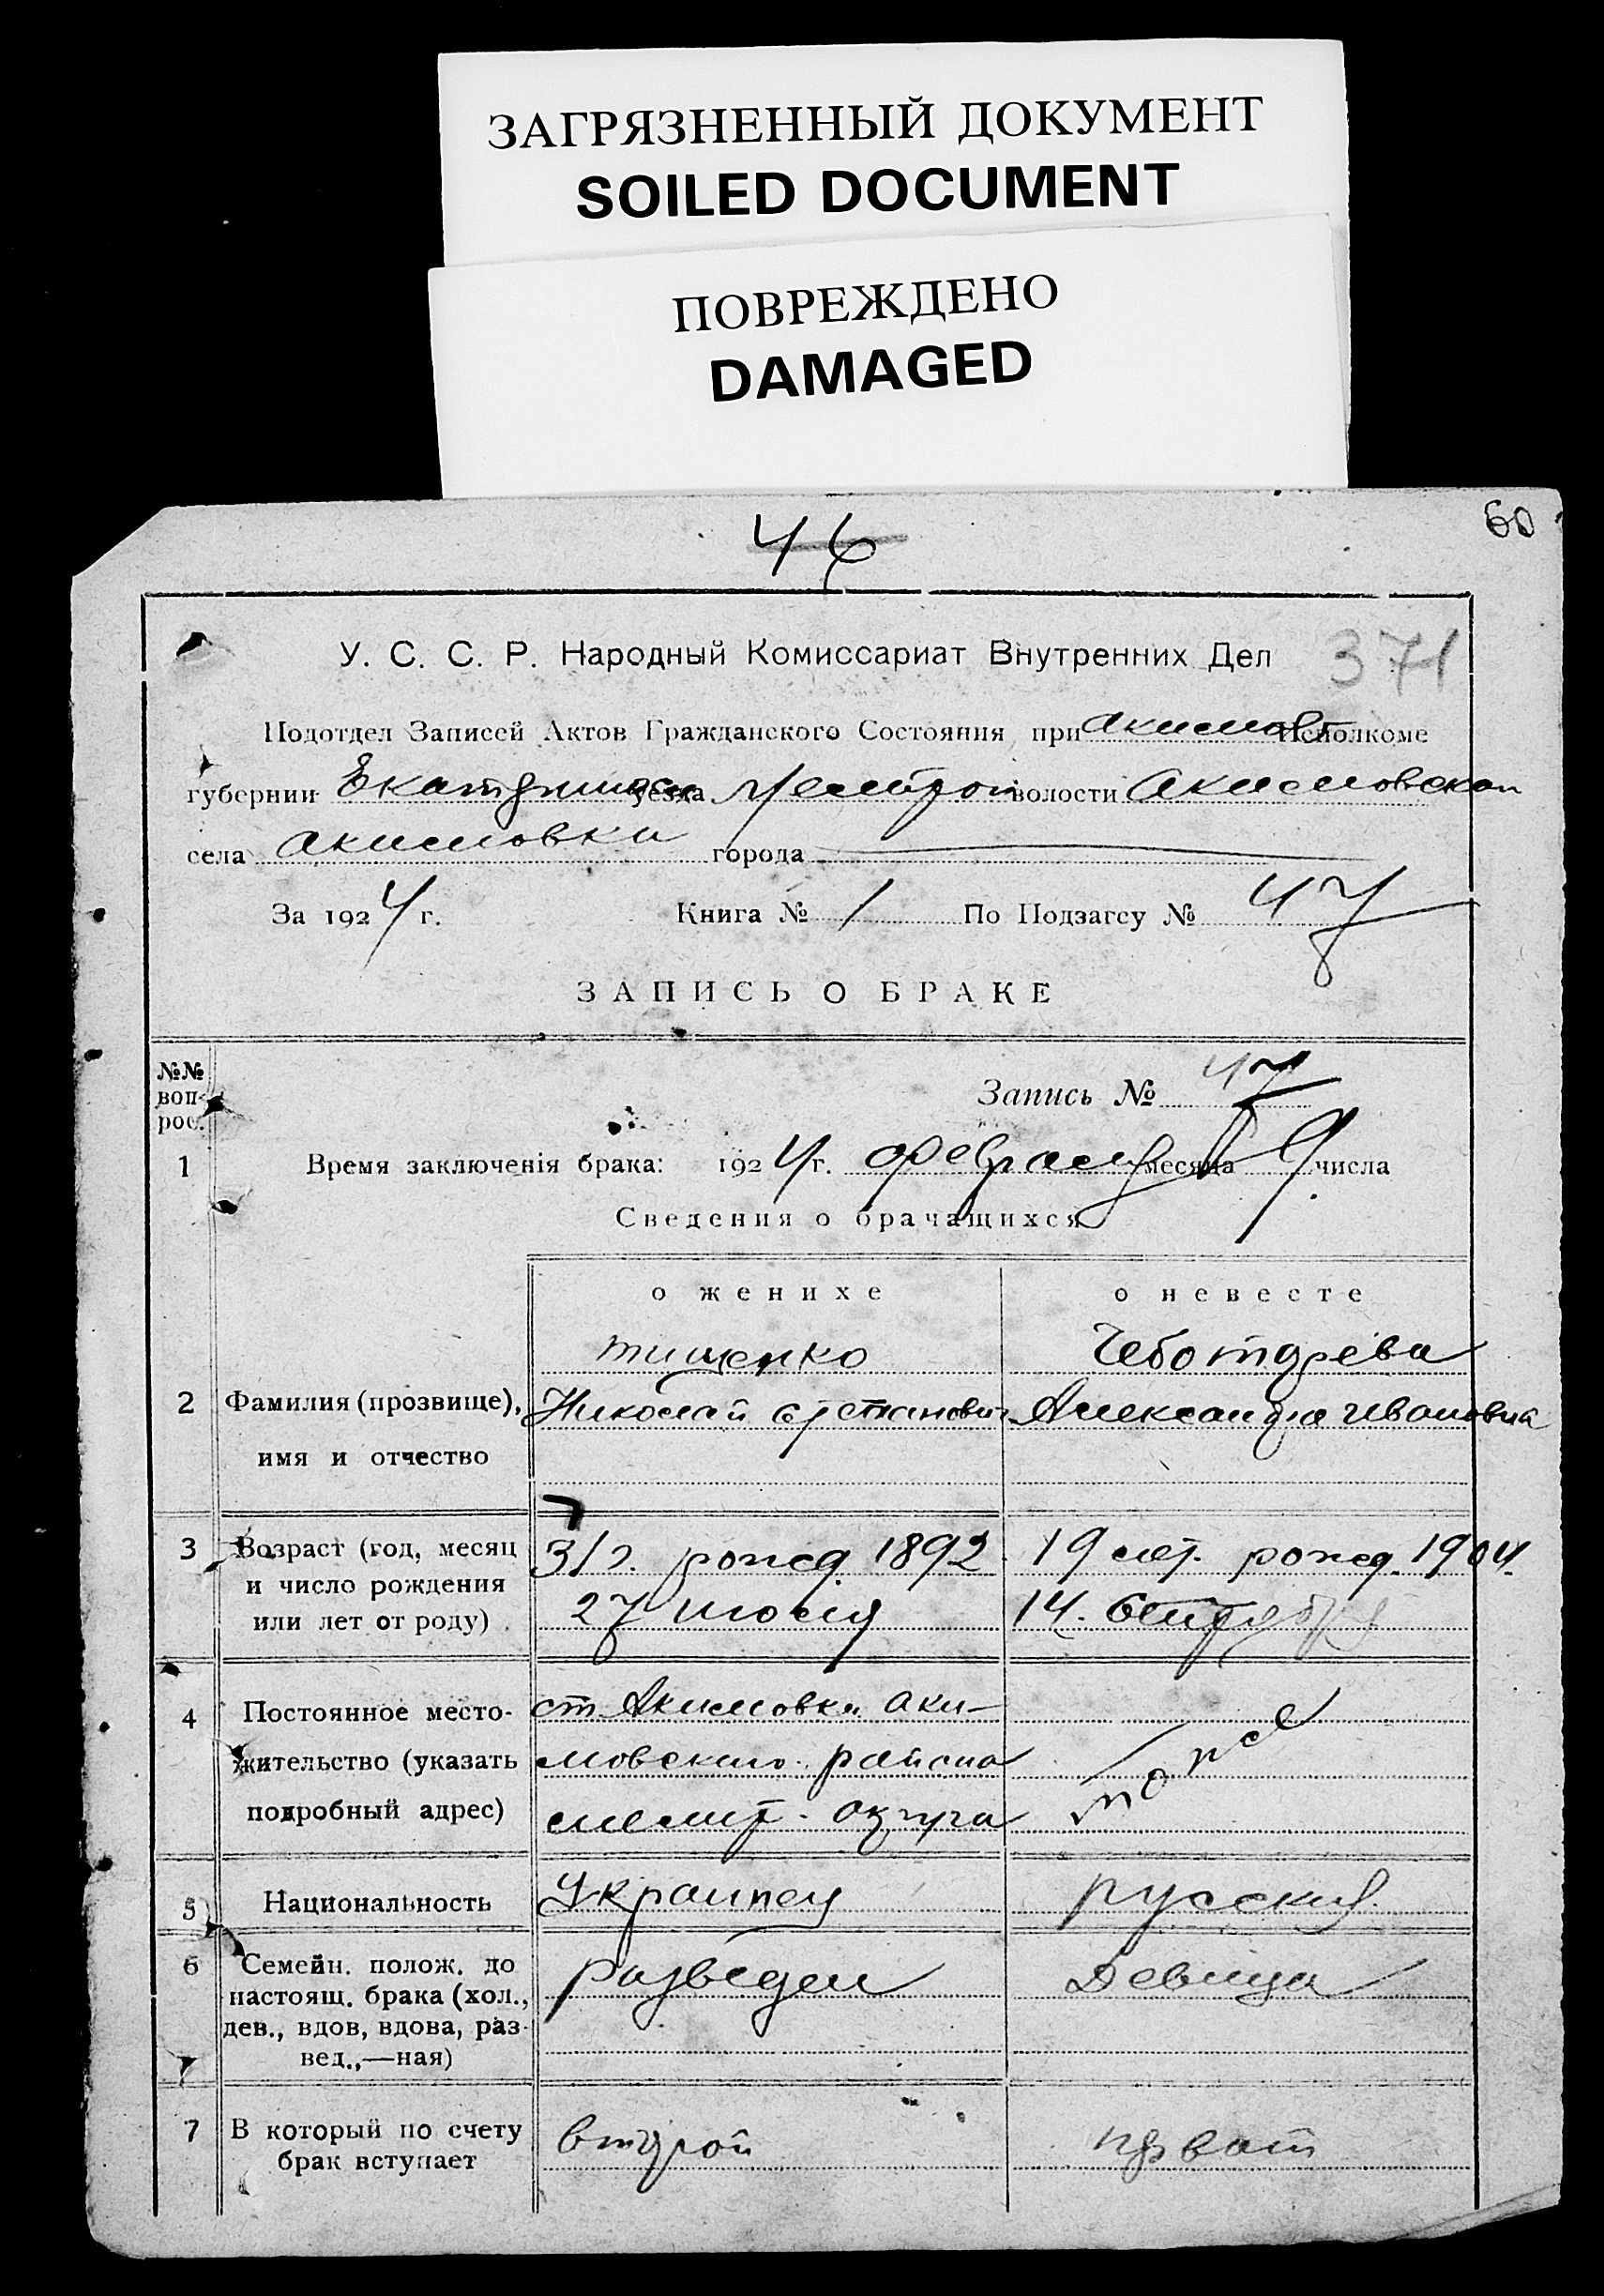 ЗАГРЯЗНЕННЫЙ ДОКУМЕНТ
SOILED DOCUMENT
ПОВРЕЖДЕНО
DAMAGED
46
60
У. С. С. Р. Народный Комиссариат Внутренних Дел
371
Подотдел Записей Актов Гражданского Состояния при Акимов Исполкоме
губернии Екатерино уезда волости Акимовской
села Акимовки города
За 1924 г. Книга № 1 По Подзагсу № 47
ЗАПИСЬ О БРАКЕ
№№ воп-рос.
Запись № 47
1 Время заключенія брака: 1924 г. февраля месяца 9 числа
Сведения о брачащихся
о женихе о невесте
Тищенко Чеботарева
2 Фамилия (прозвище), Николай Александра Ивановна
имя и отчество
3 Возраст (год, месяц 31 г. рожд. 1892 19 лет. рожд. 1904.
и число рождения 27 июля 14. Октября
или лет от роду)
4 Постоянное место- ст Акимовки Аки-
жительство (указать мовского района
подробный адрес) мелит. округа тоже
5 Национальность Украинец русская
6 Семейн. полож. до разведен Девица
настоящ. брака (хол.,
дев., вдов, вдова, раз-
вед.,—ная)
7 В который по счету второй первый
брак вступает